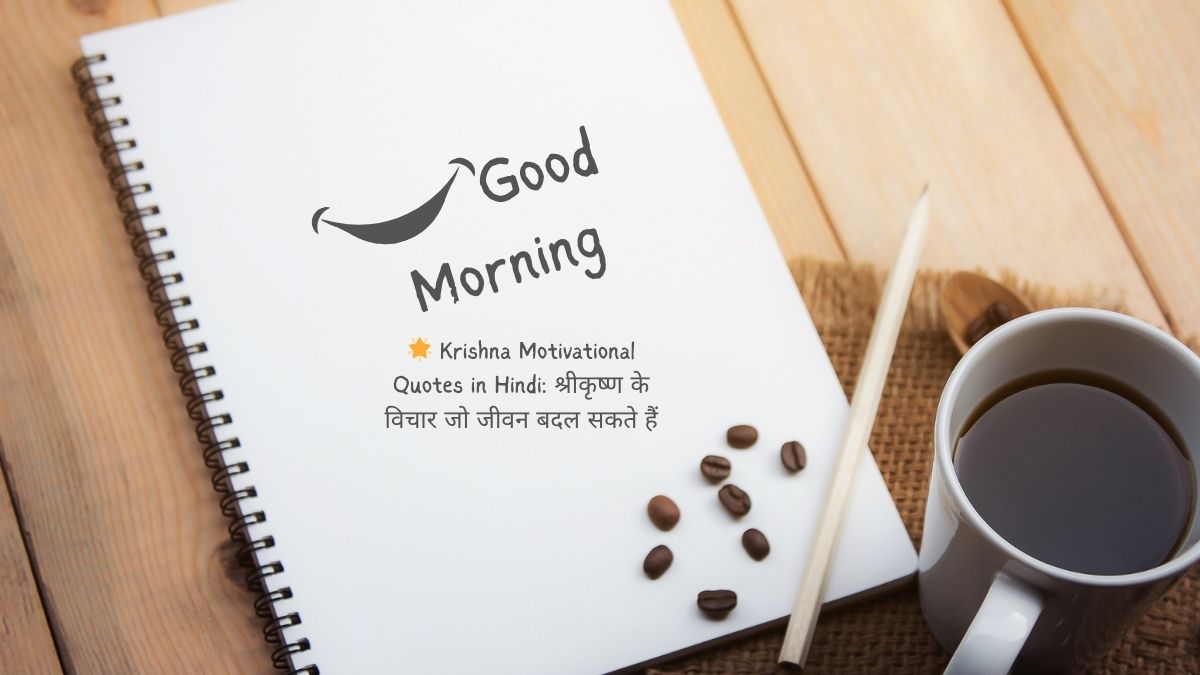 Good
Morning
🌟 Krishna Motivational
Quotes in Hindi: श्रीकृष्ण के
विचार जो जीवन बदल सकते हैं